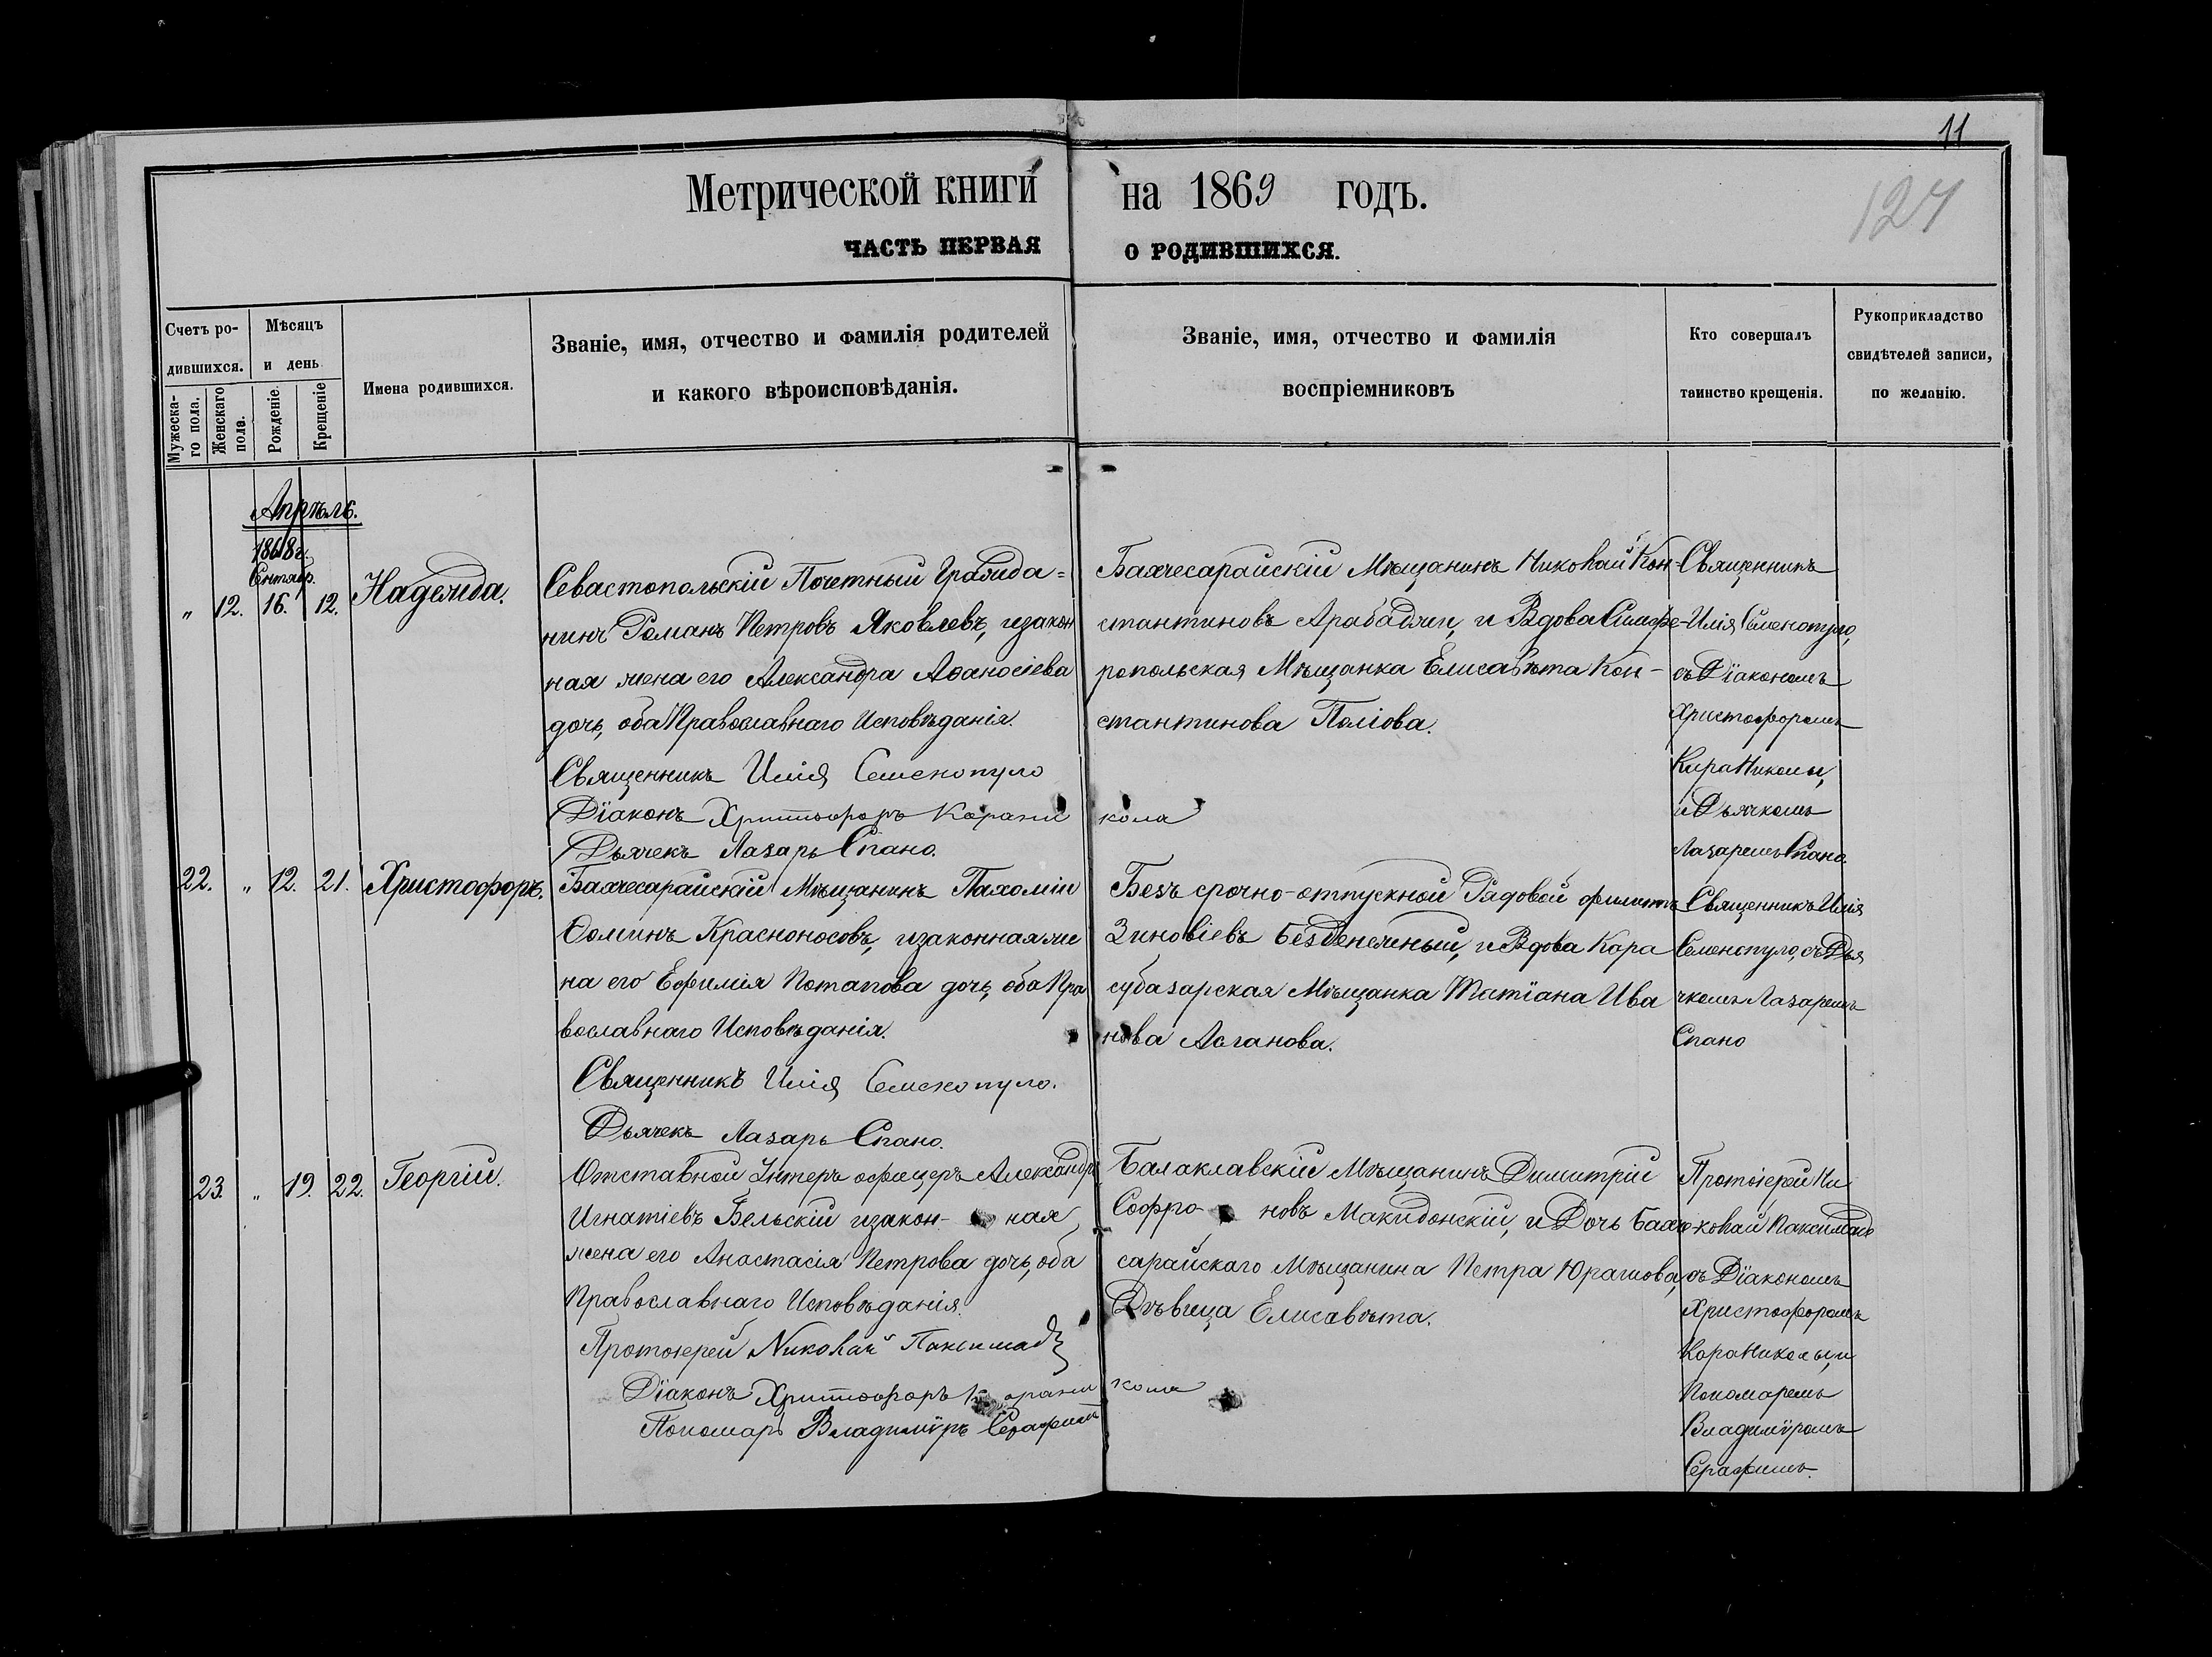 11
127
Метрической книги на 1869 годъ.
ЧАСТЬ ПЕРВАЯ О РОДИВШИХСЯ.
Счетъ ро-
дившихся.
Мужеска-
го пола.
Женскаго
пола.
Мѣсяцъ
и день
Рожденіе.
Крещеніе
Имена родившихся.
Званіе, имя, отчество и фамилія родителей
и какого вѣроисповѣданія.
Званіе, имя, отчество и фамилія
воспріемниковъ
Кто совершалъ
таинство крещенія.
Рукоприкладство
свидѣтелей записи,
по желанію.
Апрѣль.
1868 г.
Сентябр.
" 12. 16. 12. Надежда.
Севастопольскій Почетный Гражда=
нинъ Романъ Петровъ Яковлевъ, изакон
ная жена его Александра Аѳаносіева
дочь, оба Православнаго Исповѣданія.
Священникъ Илія Семенопуло
Діаконъ Христофоръ Карани кола
Дьячекъ Лазарь Спано.
Бахчесарайскій Мѣщанинъ Николай Кон-
стантиновъ Арабаджи, и Вдова Симфе-
ропольская Мѣщанка Елисавѣта Кон-
стантинова Поліова.
Священникъ
Илія Семенопуло,
съ Діакономъ
Христофоромъ
Кара Николы,
и Дьячкомъ
Лазаремъ Спано.
22. " 12. 21. Христофоръ.
Бахчесарайскій Мѣщанинъ Пахомій
Ѳоминъ Красноносовъ, изаконная же
на его Ефимія Потапова дочь, оба Пра
вославнаго Исповѣданія.
Священникъ Илія Семенопуло.
Дьячекъ Лазарь Спано.
Безъ срочно-отпускной Рядовой Филиппъ
Зиновіевъ Безденежный, и Вдова Кара
субазарская Мѣщанка Татіана Ива
нова Асганова.
Священникъ Илія
Семенопуло, съ Дья
чкомъ Лазаремъ
Спано
23. " 19. 22. Георгій.
Отставной Унтеръ офицеръ Александръ
Игнатіевъ Бельскій изакон- ная
жена его Анастасія Петрова дочь, оба
Православнаго Исповѣданія.
Протоіерей Николай Паксимади
Діаконъ Христофоръ Карани кола
Пономарь Владиміръ Серафимъ
Балаклавскій Мѣщанинъ Димитрій
Софро- новъ Макидонскій, и Дочь Бахче
сарайскаго Мѣщанина Петра Юрашова,
Дѣвица Елисавѣта.
Протоіерей Ни
колай Паксимаде
съ Діакономъ
Христофоромъ
Кара Николы, и
Пономаремъ
Владиміромъ
Серафимъ.